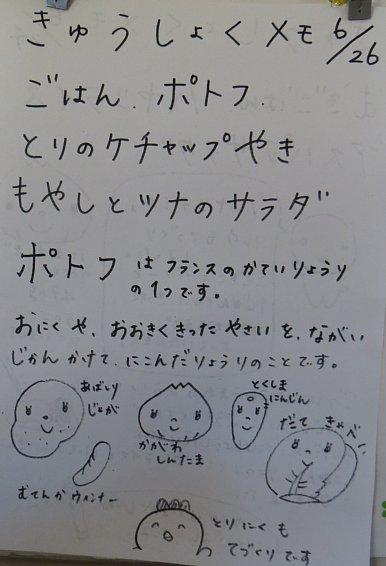 きゅうしょくメモ 6/26
ごはん.ポトフ.
とりのケチャップやき
もやしとツナのサラダ
ポトフ は フランスのかていりょうり
の1つです。
おにくや、おおきくきったやさいを、ながい
じかんかけて、にこんだりょうりのことです。
あばしり
じゃが
かがわ
しんたま
とくしま
にんじん
だて きゃべ
むてんかウィンナー
とりにくも
てづくりです